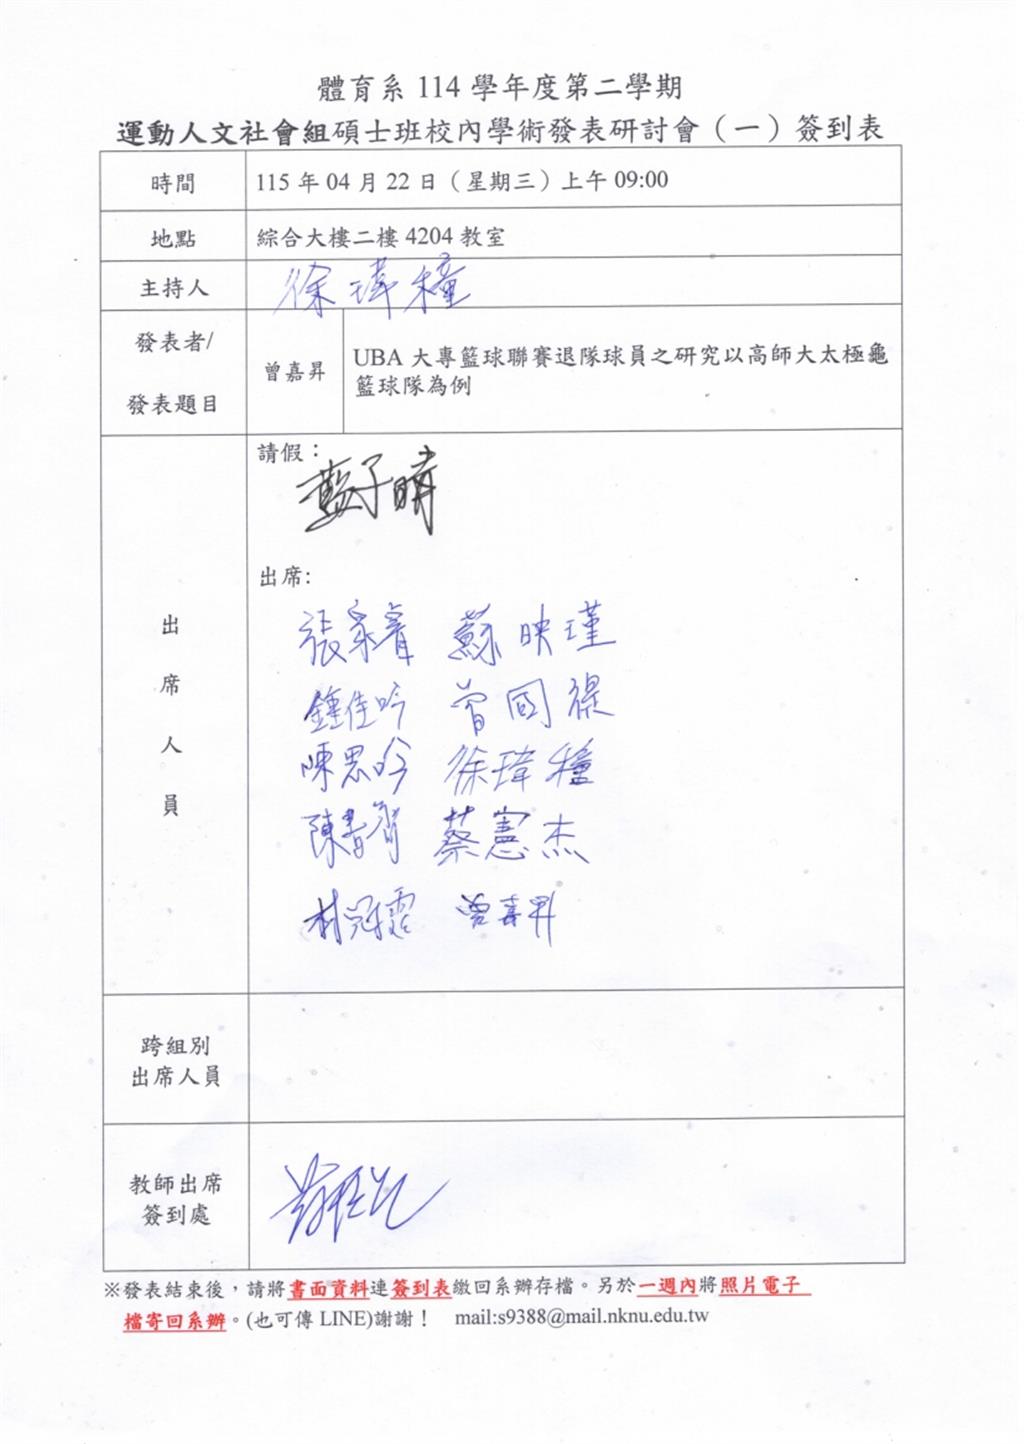 體育系 114 學年度第二學期
運動人文社會組碩士班校內學術發表研討會（一）簽到表
時間
115 年 04 月 22 日（星期三）上午 09:00
地點
綜合大樓二樓 4204 教室
主持人
徐瑋橦
發表者/
發表題目
曾嘉昇
UBA 大專籃球聯賽退隊球員之研究以高師大太極龜
籃球隊為例
出席人員
請假：
藍子晴
出席:
張家睿 蘇映瑾
鍾佳吟 曾國禔
陳思吟 徐瑋橦
陳書齊 蔡憲杰
林冠霑 曾嘉昇
跨組別
出席人員
教師出席
簽到處
※發表結束後，請將書面資料連簽到表繳回系辦存檔。另於一週內將照片電子
檔寄回系辦。(也可傳 LINE)謝謝！ mail:s9388@mail.nknu.edu.tw